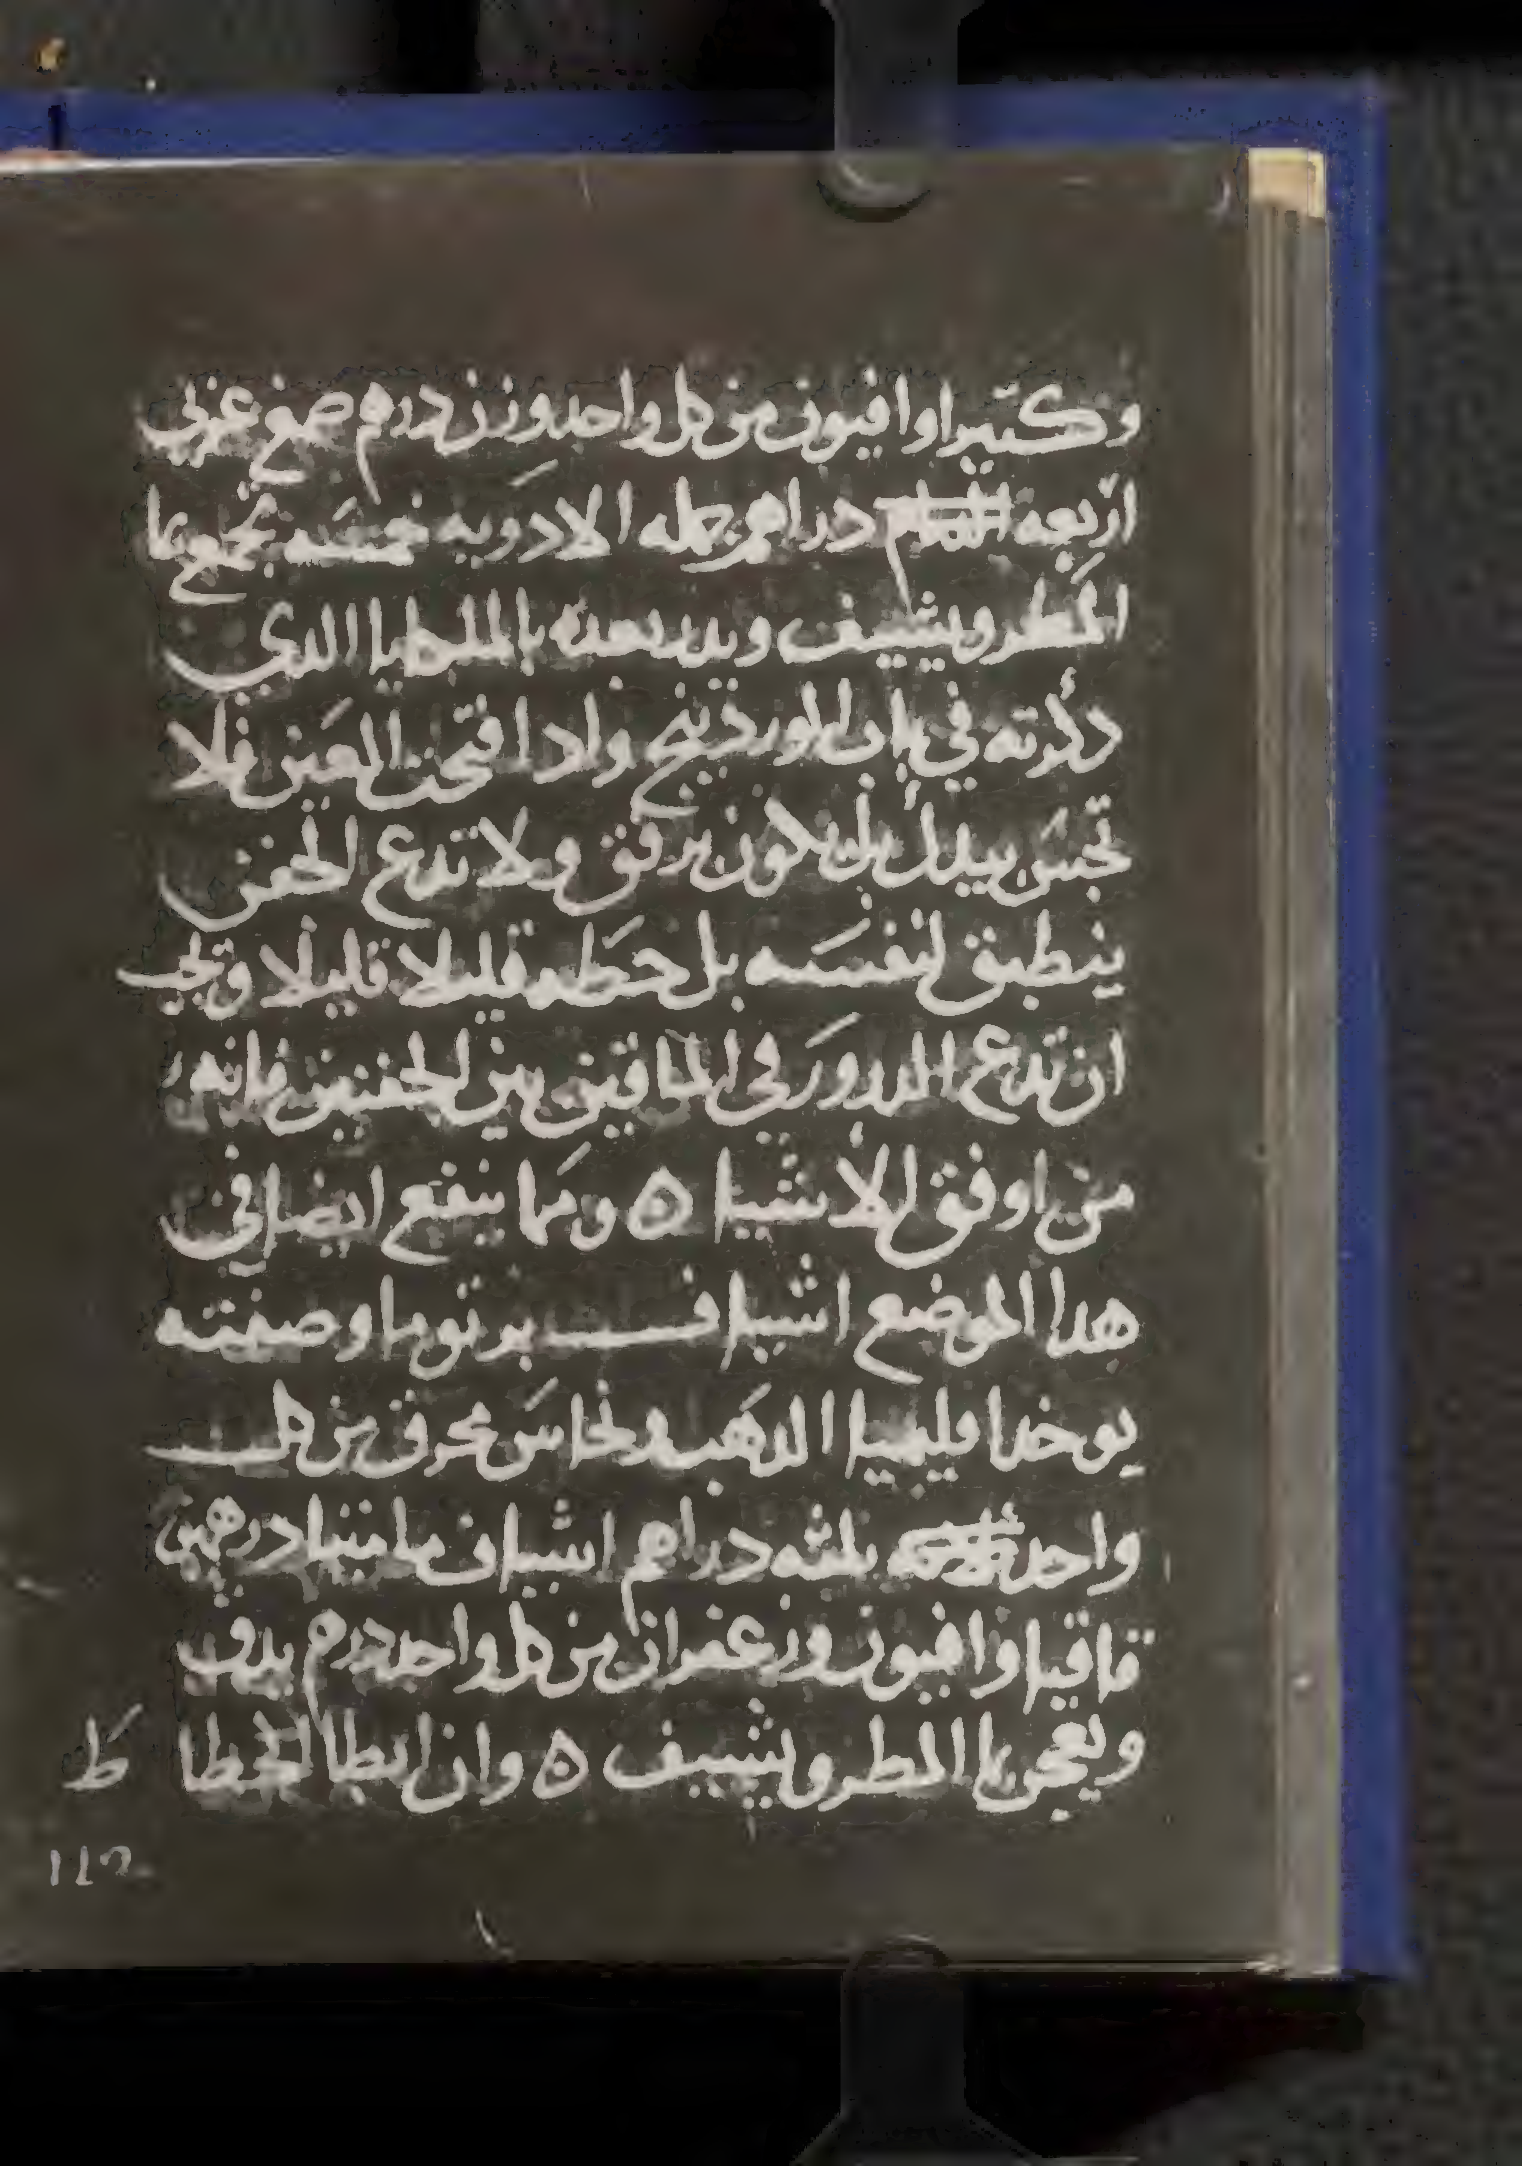 وكتيرا وافيون من كل واحد وزن درهم صمغ عربي
اربعه دراهم جمله الادويه خمسه تجمع بما
المطر ويشيف ويدر بعده بالملكايا الدي
دكرته في باب الوردينج وادا فتحت العين فلا
تحس بيدك بل يكون برفق ولا تدع الجفن
ينطبق لنفسه بل حطه قليلا قليلا وتجب
ان تدع الدرور في الماقين بين الجفنين فانه
من اوفق الاشيا ٥ ومما ينفع ايضا في
هدا الموضع اشياف بر توما وصفته
يوخد اقليميا الدهب ونحاس محرق من كل
واحد ثلثه دراهم اشياف ماميثا درهمين
قاقيا وافيون وزعفران من كل واحد درهم يدق
ويعجن بما المطر ويشيف ٥ وان ابطا الخطا
ط